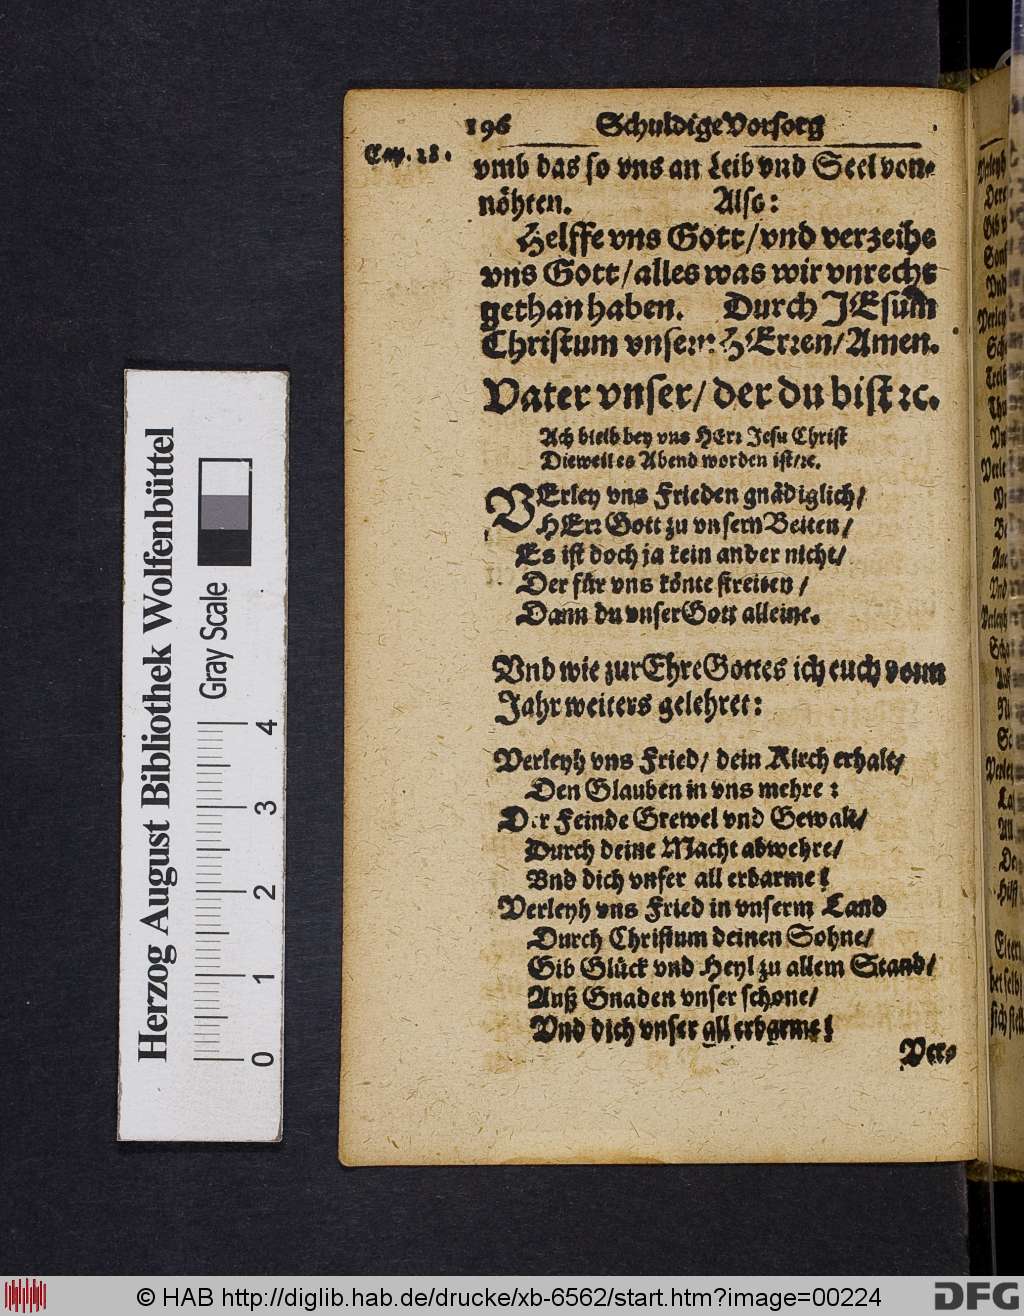 196 Schuldige Vorsorg
Cap. 28.
vmb das so vns an Leib vnd Seel von-
nöhten. Also:
Helffe vns Gott/vnd verzeihe
vns Gott/alles was wir vnrecht
gethan haben. Durch JEsum
Christum vnsern HErren/Amen.
Vater vnser/der du bist ꝛc.
Ach bleib bey vns HErr Jesu Christ
Dieweil es Abend worden ist/ꝛc.
VErley vns Frieden gnädiglich/
HErr Gott zu vnsern Zeiten/
Es ist doch ja kein ander nicht/
Der für vns könte streiten/
Dann du vnser Gott alleine.
Vnd wie zur Ehre Gottes ich euch vorm
Jahr weiters gelehret:
Verleyh vns Fried/ dein Kirch erhalt/
Den Glauben in vns mehre:
Der Feinde Grewel vnd Gewalt/
Durch deine Macht abwehre/
Vnd dich vnser all erbarme!
Verleyh vns Fried in vnserm Land
Durch Christum deinen Sohne/
Gib Glück vnd Heyl zu allem Stand/
Auß Gnaden vnser schone/
Vnd dich vnser all erbarme!
Ver-
Herzog August Bibliothek Wolfenbüttel
Gray Scale
0 1 2 3 4
© HAB http://diglib.hab.de/drucke/xb-6562/start.htm?image=00224
DFG